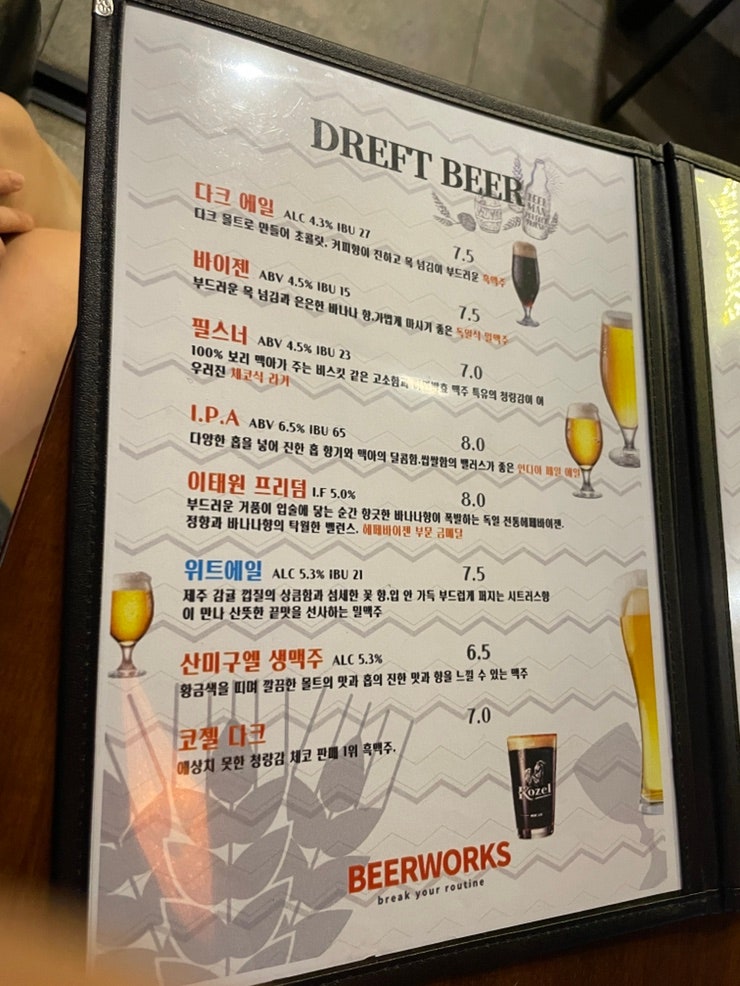 DREFT BEER
다크 에일 ALC 4.3% IBU 27
7.5
다크 몰트로 만들어 초콜릿, 커피향이 진하고 목 넘김이 부드러운 흑맥주
바이젠 ABV 4.5% IBU 15
7.5
부드러운 목 넘김과 은은한 바나나 향,가볍게 마시기 좋은 독일식 밀맥주
필스너 ABV 4.5% IBU 23
7.0
100% 보리 맥아가 주는 비스킷 같은 고소함과 맥주 특유의 청량감이 어
우러진 체코식 라거
I.P.A ABV 6.5% IBU 65
8.0
다양한 홉을 넣어 진한 홉 향기와 맥아의 달콤함,씁쌀함의 밸러스가 좋은 인디아 페일 에일
이태원 프리덤 I.F 5.0%
8.0
부드러운 거품이 입술에 닿는 순간 향긋한 바나나향이 폭발하는 독일 전통헤페바이젠.
정향과 바나나향의 탁월한 밸런스. 헤페바이젠 부문 금메달
위트에일 ALC 5.3% IBU 21
7.5
제주 감귤 껍질의 상큼함과 섬세한 꽃 향,입 안 가득 부드럽게 퍼지는 시트러스향
이 만나 산뜻한 끝맛을 선사하는 밀맥주
산미구엘 생맥주 ALC 5.3%
6.5
황금색을 띠며 깔끔한 몰트의 맛과 홉의 진한 맛과 향을 느낄 수 있는 맥주
코젤 다크
7.0
예상치 못한 청량감 체코 판매 1위 흑맥주.
Kozel
BEERWORKS
break your routine